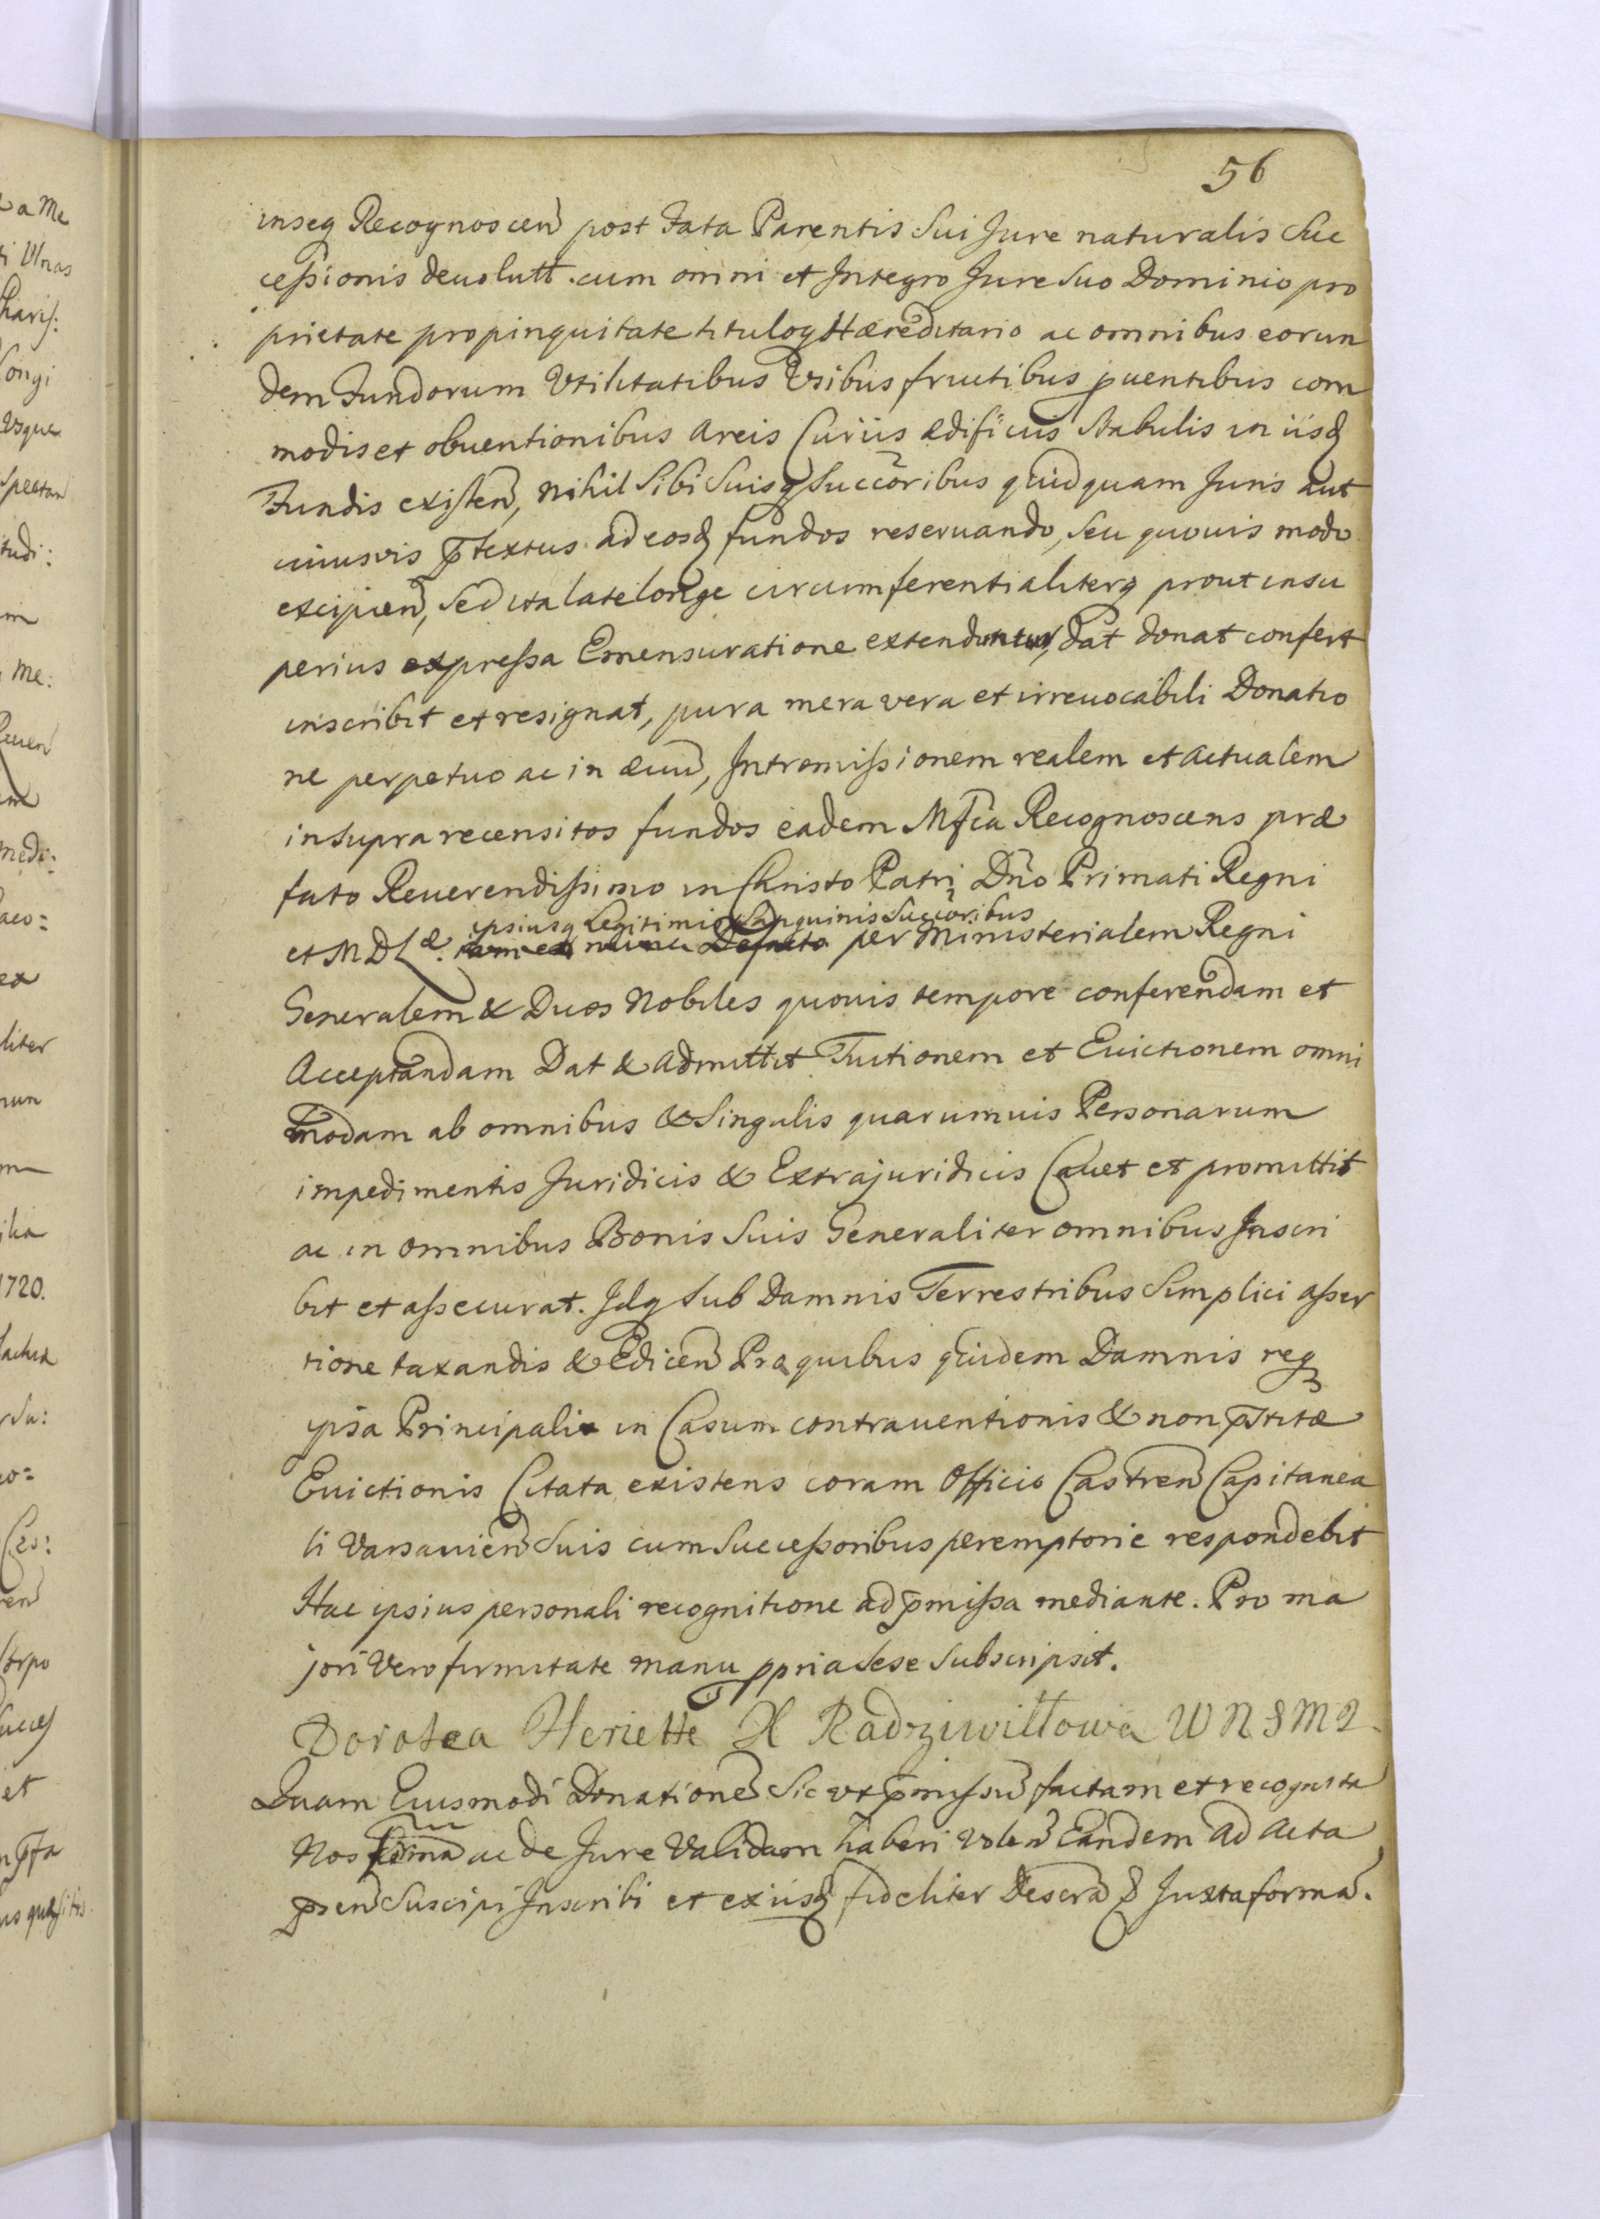 56
inseq Recognoscen post Fata Parentis Sui Jure naturalis Suc
cessionis deuolutt. cum omni et Integro Jure Suo Dominio pro
prietate propinquitate tituloq Hæreditario ac omnibus eorun
dem Fundorum Vtilitatibus Vsibus fructibus puentibus com
modis et obuentionibus Areis Curiis ædificiis Stabulis in iisq
Fundis existen, nihil Sibi Suisq Succoribus quidquam Juris aut
cuiusvis ptextus ad eosq fundos reseruando, seu quouis modo
excipien, sed ita late longe circumferentialiterq prout insu
perius expressa Emensuratione extenduntur, dat donat confert
inscribit et resignat, pura mera vera et irreuocabili Donatio
ne perpetuo ac in æuu, Intromissionem realem et Actualem
in supra recensitos fundos eadem Mfca Recognoscens præ
fato Reuerendissimo in Christo Patri Dno Primati Regni
ipsiusq Legitimis Sanguinis Succoribus
et M D L æ. per Ministerialem Regni
Generalem & Duos Nobiles quouis tempore conferendam et
Acceptandam Dat & Admittit Tuitionem et Euictionem omni
modam ab omnibus & Singulis quarumuis Personarum
impedimentis Juridicis & Extrajuridicis Cauet et promittit
ac in omnibus Bonis Suis Generaliter omnibus Inscri
bit et assecurat. Idq Sub Damnis Terrestribus Simplici asser
tione taxandis & Edicen Pro quibus quidem Damnis req
ipsa Principali in Casum contrauentionis & non pstitæ
Euictionis Citata existens coram Officio Castren Capitanea
li Varsauien Suis cum Successoribus peremptorie respondebit
Hac ipsius personali recognitione ad pmissa mediante. Pro ma
jori Vero firmitate manu ppria Sese Subscripsit.
Dorotea Heriette X Radziwiłłowa W N S M L
Quam Eiusmodi Donatione Sic vt pmissu factam et recognita
Nos firma ac de Jure Validam haberi volen Eandem Ad Acta
psen Suscipi Inscribi et ex iisq fideliter Descra Juxta forma.